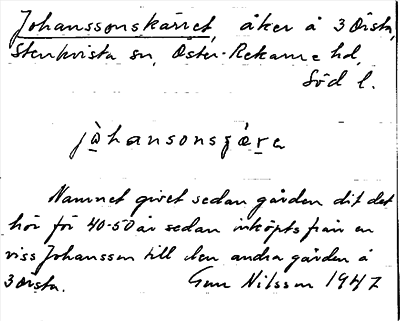 Johanssonskärret, åker å 3 Örsta,
Stenkvista sn, Öster-Rekarne hd,
Söd l.
jòhansonsɟǽrə
Namnet givet sedan gården dit det
hör för 40-50 år sedan inköpts från en
viss Johansson till den andra gården å
3 Örsta. Gun Nilsson 1947